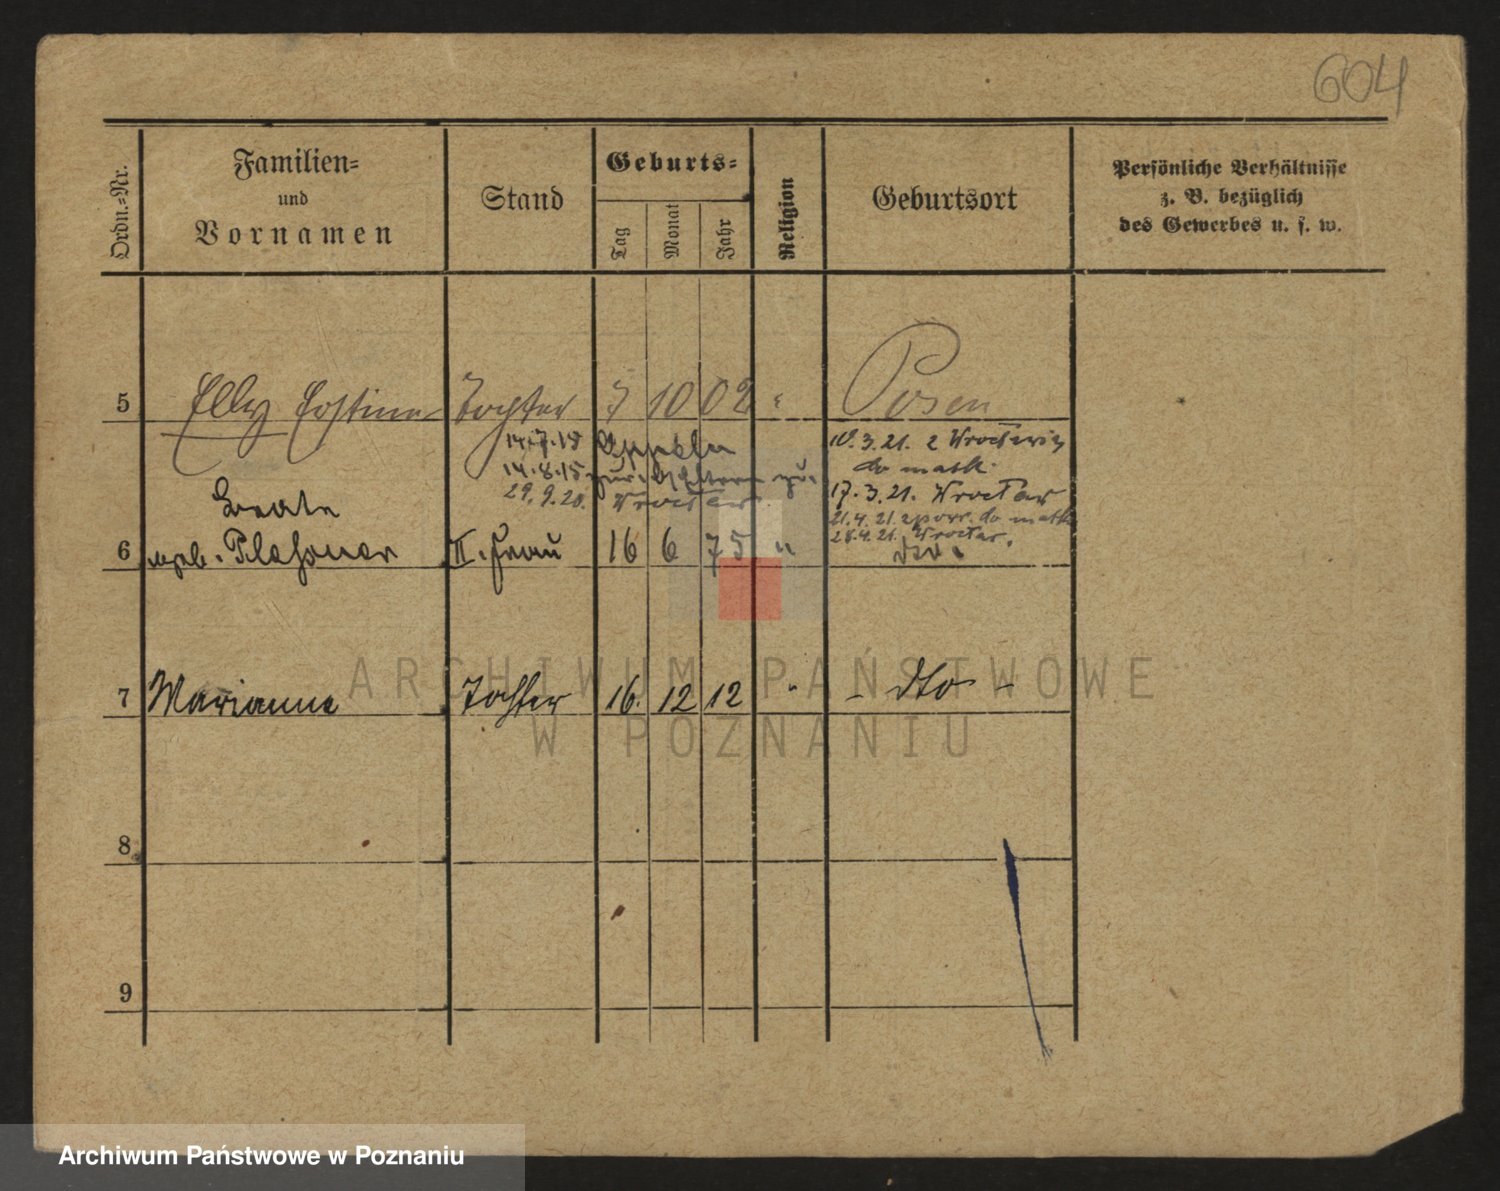 604
Ordn.=Nr.
Familien=
und
Vornamen
Stand
Geburts=
Tag
Monat
Jahr
Religion
Geburtsort
Persönliche Verhältnisse
z. B. bezüglich
des Gewerbes u. s. w.
5 Elly Tochter 7 10 02 " Posen
14.7.15
14.8.15 zur.
29.9.20. Wrocław
10.3.21. z Wrocławia
do matk.
17.3.21. Wrocław
21.4.21. z pow. do matk
28.4.21. Wrocław.
Beate
6 II. Frau 16 6 75 " dto.
7 Marianne Tochter 16. 12 12 " - dto -
8
9
ARCHIWUM PAŃSTWOWE
W POZNANIU
Archiwum Państwowe w Poznaniu